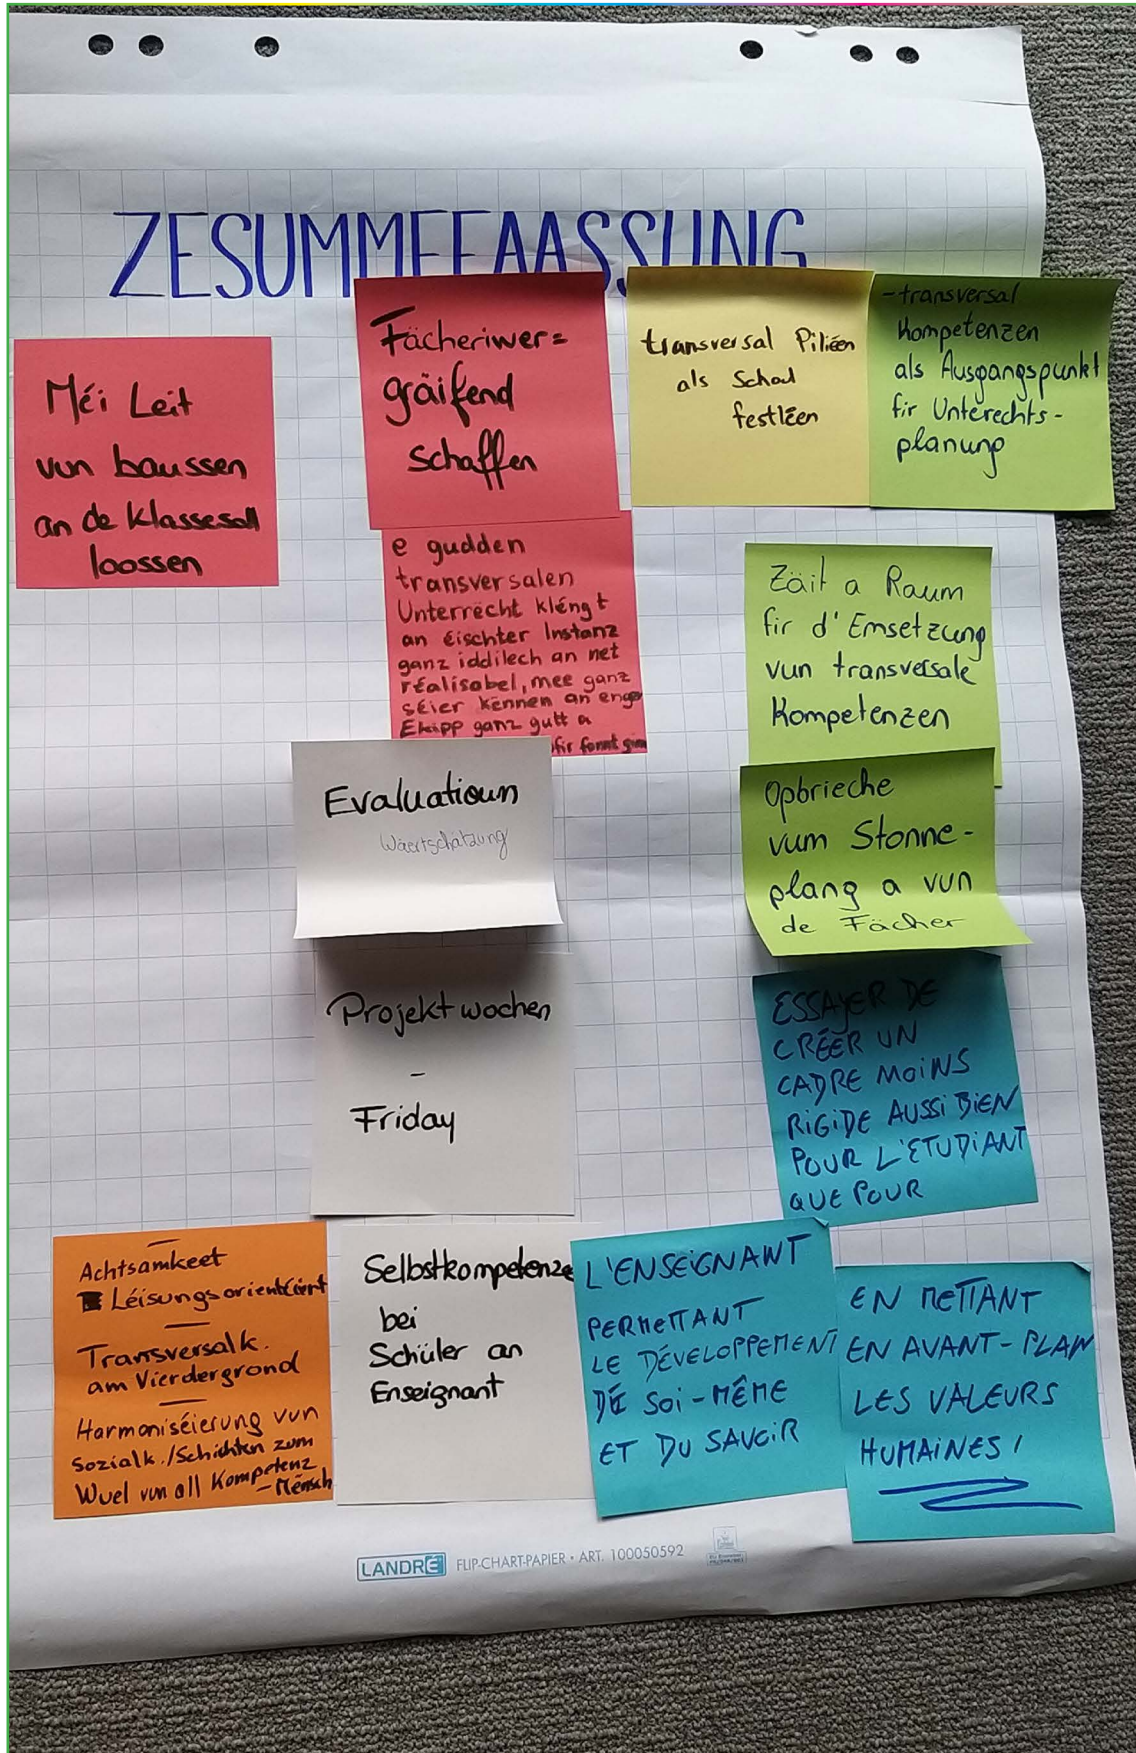 ZESUMMEFAASSUNG
Méi Leit
vun baussen
an de Klassesall
loossen
Fächeriwer=
gräifend
schaffen
transversal Piliéen
als Schoul
festléen
-transversal
Kompetenzen
als Ausgangspunkt
fir Unterechts-
planung
e gudden
transversalen
Unterrecht kléngt
an éischter Instanz
ganz iddilech an net
réalisabel, mee ganz
séier kënnen an enger
Ekipp ganz gutt a
fir fonnt ginn
Zäit a Raum
fir d'Emsetzung
vun transversale
Kompetenzen
Evaluatioun
Wäertschätzung
Opbrieche
vum Stonne-
plang a vun
de Fächer
Projektwochen
-
Friday
ESSAYER DE
CRÉER UN
CADRE MOINS
RIGIDE AUSSI BIEN
POUR L'ETUDIANT
QUE POUR
Achtsamkeet
Léisungsorientéiert
Transversalk.
am Vierdergrond
Harmoniséierung vun
Sozialk./Schichten zum
Wuel vun all Kompetenz
-Mënsch
Selbstkompetenze
bei
Schüler an
Enseignant
L'ENSEIGNANT
PERMETTANT
LE DÉVELOPPEMENT
DE SOI-MÊME
ET DU SAVOIR
EN METTANT
EN AVANT-PLAN
LES VALEURS
HUMAINES!
LANDRÉ FLIP-CHART-PAPIER • ART. 100050592